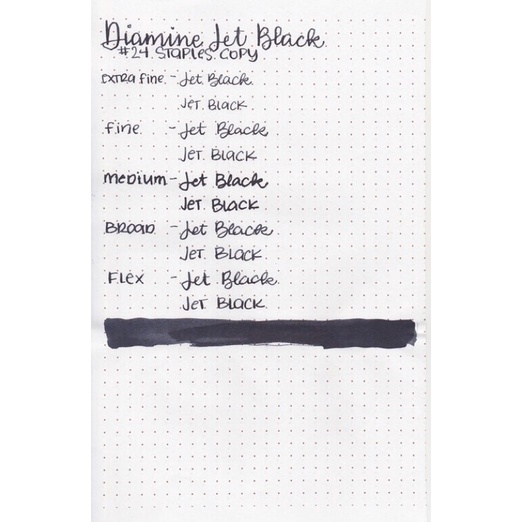 Diamine Jet Black
#24 Staples Copy
Extra Fine - Jet Black
Jet Black
Fine - Jet Black
Jet Black
Medium - Jet Black
Jet Black
Broad - Jet Black
Jet Black
Flex - Jet Black
Jet Black